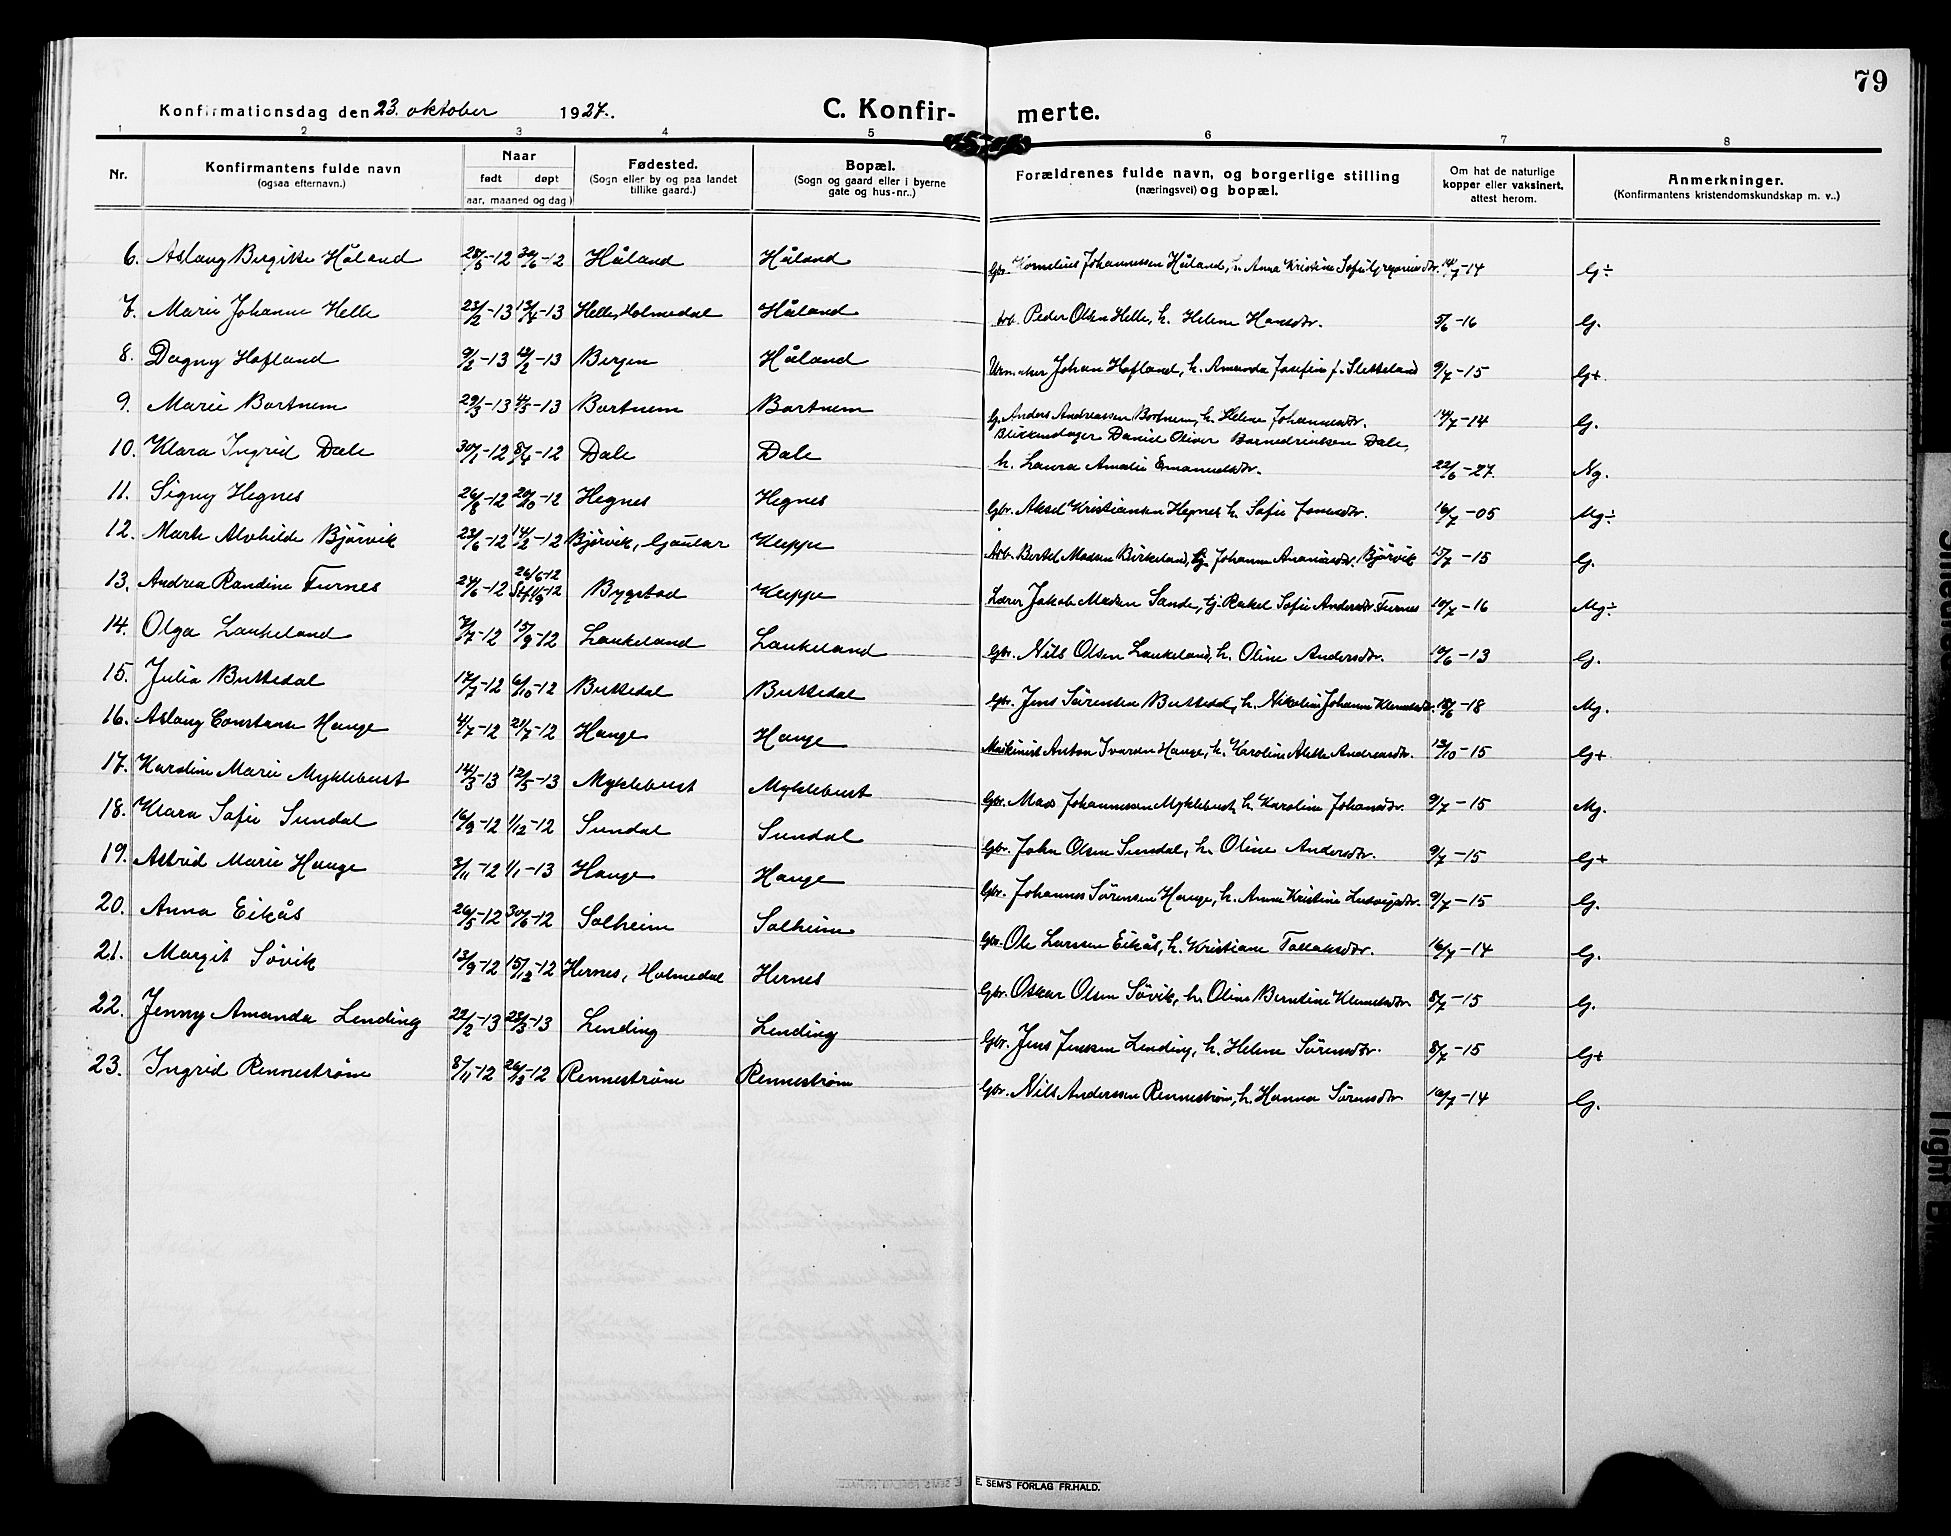 79
Konfirmationsdag den 23. oktober 1927. C. Konfir- merte.
1 2 3 4 5 6 7 8
Nr. Konfirmantens fulde navn (ogsaa efternavn.) Naar født døpt (aar, maaned og dag) Fødested. (Sogn eller by og paa landet tillike gaard.) Bopæl. (Sogn og gaard eller i byerne gate og hus-nr..) Forældrenes fulde navn, og borgerlige stilling (næringsvei) og bopæl. Om hat de naturlige kopper eller vaksinert, attest herom. Anmerkninger. (Konfirmantens kristendomskundskap m. v..)
6. Aslaug Birgitte Håland 28/5-12 30/6-12 Håland Håland Gbr. Kornelius Johannessen Håland, h. Anna Kristine Sofie Gregoriusdtr. 14/7-14 G÷
7. Marie Johanne Helle 23/2-13 13/4-13 Helle, Holmedal Håland Arb. Peder Olsen Helle, h. Helene Hansdtr. 5/6-16 G.
8. Dagny Hofland 9/2-13 -13 Bergen Håland Urmaker Johan Hofland, h. Amanda Josefine f. Sletteland 9/7-15 G+
9. Marie Bortnem 29/3-13 4/5-13 Bortnem Bortnem G. Anders Andreassen Bortnem, h. Helene Johannesdtr. 14/7-14 G.
10. Klara Ingrid Dale 30/1-12 8/4-12 Dale Dale Blikkenslager Daniel Oliver Dale,
h. Laura Amalie Emanuelsdtr. 22/6-27. Ng.
11. Signy Hegnes 26/8-12 20/10-12 Hegnes Hegnes Gbr. Aksel Kristiansen Hegnes h. Sofie Jonasdtr. 16/7-05 Mg÷
12. Marta Alvhilde Bjørvik 23/6-12 14/2-12 Bjørvik, Gaular Kleppe Arb. Bertel Madsen Birkeland, tj. Johanne Ananiasdtr. Bjørvik 15/7-15 G.
13. Andrea Randine Furnes 24/6-12 26/6-12 Stf. 15/9-12 Bygstad Kleppe Lærer Jakob Madsen Sande, tj. Rakel Sofie Andersdtr. Furnes 10/7-16 Mg÷
14. Olga Laukeland 7/7-12 15/9-12 Laukeland Laukeland Gbr. Nils Olsen Laukeland, h. Oline Andersdtr. 10/6-13 G.
15. Julia Buttedal 17/7-12 6/10-12 Buttedal Buttedal Gbr. Jens Sørensen Buttedal, h. Nikoline Johanne Klemetsdtr. 18/6-18 Mg.
16. Aslaug Constanse Hauge 4/7-12 21/7-12 Hauge Hauge Maskinist Anton Ivarsen Hauge, h. Karoline Alette Andreasdtr. 13/10-15 G+
17. Karoline Marie Myklebust 14/3-13 12/5-13 Myklebust Myklebust Gbr. Mads Johannessen Myklebust, h. Karoline Johansdtr. 9/7-15 Mg.
18. Klara Sofie Sundal 16/9-12 1/12-12 Sundal Sundal Gbr. John Olsen Sundal, h. Oline Andersdtr. 9/7-15 G+
19. Astrid Marie Hauge 3/11-12 1/1-13 Hauge Hauge Gbr. Johannes Sørensen Hauge, h. Anne Kristine Ludvigsdtr. 9/7-15 G.
20. Anna Eikås 26/5-12 30/6-12 Solheim Solheim Gbr. Ole Larssen Eikås, h. Kristiane Tollaksdtr. 16/7-14 G.
21. Margit Søvik 13/9-12 15/12-12 Hernes, Holmedal Hernes Gbr. Oskar Olsen Søvik, h. Oline Berntine Klemetsdtr. 8/7-15 G.
22. Jenny Amanda Lending 22/2-13 28/3-13 Lending Lending Gbr. Jens Jensen Lending, h. Helene Sørensdtr. 8/7-15 G+
23. Ingrid Rennestrøm 8/11-12 26/12-12 Rennestrøm Rennestrøm Gbr. Nils Anderssen Rennestrøm, h. Hanna Sørensdtr 16/7-14 G.
E. SEM'S FORLAG FR.HALD.